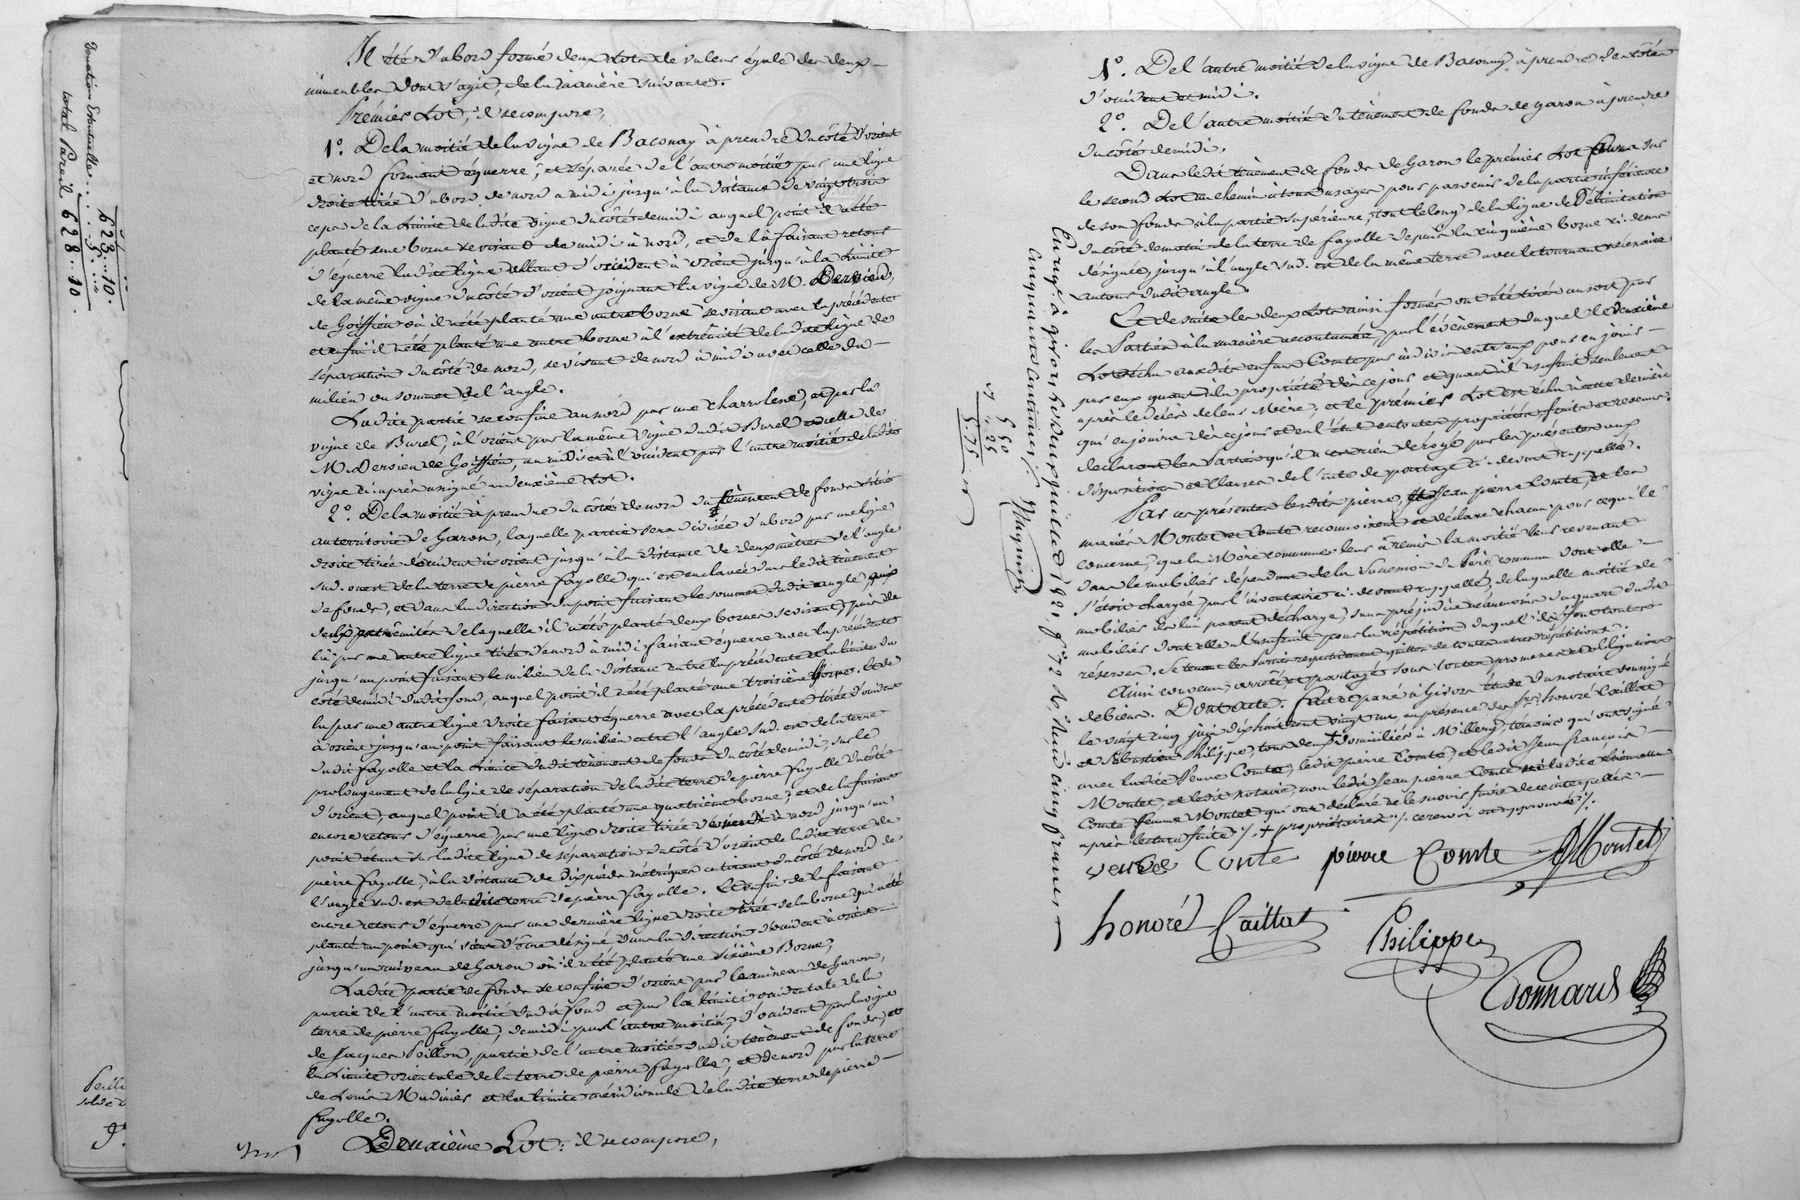 Donation Eventuelle
623 .. 10.
5
total Pareil 628 .. 10.
Il a été d'abord formé deux Lots de valeur égale des deux
immeubles dont s'agit, de la manière suivante.
Premier Lot, il se compose,
1º. De la moitié de la vigne de Baconay à prendre du côté d'orient
et nord formant équerre, et séparée de l'autre moitié par une ligne
droite tirée d'abord de nord à midi jusqu'à la distance de vingt trois
ceps de la Limite de la dite vigne du côté de midi auquel point il a été
planté une borne se visant de midi à nord, et de là faisant retour
d'équerre la dite ligne allant d'occident à orient jusqu'à la Limite
de la même vigne du côté d'orient joignant la vigne de M. Dervieu,
de Goiffieu où il a été planté une autre borne se visant avec la précédente
et enfin il a été planté une autre borne à l'extrêmité de la dite ligne de
séparation du côté de nord, se visant de nord à midi avec celle du
milieu ou sommet de l'angle.
La dite partie se confine au nord par une charrolere, et par la
vigne de Burel, à l'orient par la même vigne dudit Burel et celle de
M. Dervieu de Goiffieu, au midi et à l'occident par l'autre moitié de la dite
vigne ci après assigné au deuxième Lot.
2º. De la moitié à prendre du côté de nord du tènement de fonds situé
au territoire de Garon, laquelle partie sera divisée d'abord par une ligne
droite tirée d'occident à orient jusqu'à la distance de deux mètres de l'angle
sud-ouest de la terre de pierre fayolle qui est enclavée dans le dit tènement
de fonds, et dans la direction du point faisant le sommet dudit angle, aux
deux extrêmités de laquelle il a été planté deux bornes se visant, puis de
là par une autre ligne tirée de nord à midi faisant équerre avec la précédente
jusqu'au point faisant le milieu de la distance entre la précédente et la limite du
côté de midi dudit fond, auquel point il a été planté une troisième Borne, et de
là par une autre ligne droite faisant équerre avec la précédente tirée d'occident
à orient jusqu'au point faisant le milieu entre l'angle sud-est de la terre
dudit fayolle et la Limite dudit tènement de fonds du côté de midi, sur le
prolongement de la ligne de séparation de la dite terre de pierre fayolle du côté
d'orient, auquel point il a été planté une quatrième borne; et de là faisant
encore retour d'équerre par une ligne droite tirée de midi à nord jusqu'au
point étant sur la dite ligne de séparation du côté d'orient de la dite terre de
pierre fayolle, à la distance de dix pieds métriques en tirant du côté de nord de
l'angle sud-est de la dite terre de pierre fayolle. Et enfin de là faisant
encore retour d'équerre par une dernière ligne droite tirée de la borne qui a été
plantée au point qui vient d'être désigné dans la direction d'occident à orient
jusqu'au ruisseau de Garon où il a été planté une sixième Borne;
La dite partie de fonds se confine d'orient par le ruisseau de Garon,
partie de l'autre moitié dudit fond et par la limite occidentale de la
terre de pierre fayolle, de midi par l'autre moitié, d'occident par la vigne
de Jacques Poillon, partie de l'autre moitié dudit tènement de fonds, et
la Limite orientale de la terre de pierre fayolle, et de nord par la terre
de Louis Mudinier et la limite méridionale de la dite terre de pierre
fayolle.
Deuxième Lot: il se compose,
1º. De l'autre moitié de la vigne de Baconay à prendre du côté
d'occident et midi.
2º. De l'autre moitié du tènement de fonds de Garon à prendre
du côté de midi.
Dans le dit tènement de fonds de Garon le premier Lot aura sur
le second Lot un chemin à tous usages pour parvenir de la partie inférieure
de son fonds à la partie supérieure, tout le long de la ligne de Délimitation
du côté de matin de la terre de fayolle depuis la cinquième borne ci-devant
désignée, jusqu'à l'angle sud-est de la même terre avec le tournant nécessaire
autour dudit angle.
Et de suite les deux Lots ainsi formés ont été tirés au sort par
les Parties à la manière accoutumée, par l'évènement duquel le deuxième
Lot est échu aux dits enfans Comte par indivis entr'eux pour en jouir
par eux quant à la propriété dès ce jour et quant à l'usufruit seulement
après le décès de leur Mère, et le premier Lot est échu à cette dernière
qui en jouira dès ce jour et en l'état en toute propriété, fruits et revenus.
déclarant les Parties qu'il n'est rien dérogé par les présentes aux
dispositions et clauses de l'acte de partage ci-devant rappellé.
Par ces présentes les dits pierre, Jean pierre Comte, et les
mariés Montet et Comte reconnoissent et déclare chacun pour ce qui le
concerne, que la Mère commune leur a remis la moitié leur revenant
dans le mobilier dépendant de la Succession du Père commun dont elle
s'étoit chargée par l'inventaire ci-devant rappellé, de laquelle moitié de
mobilier ils lui passent décharge, sans préjudice néanmoins du quart dudit
mobilier dont elle a l'usufruit pour la répétition duquel ils font toutes
réserves. Se tenant les Parties respectivement quittes de toutes autres répétitions.
Ainsi convenu, arrêté et partagé sous toutes promesses et obligations
de biens. Dont acte. fait et passé à Givors Étude du notaire soussigné
le vingt cinq juin dix huit cent vingt un, en présence des Srs. honoré Caillat
et Sébastien Philippe, tous deux + domiciliés à Millery, témoins qui ont signé
avec la dite Veuve Comte, le dit pierre Comte, et le dit Jean françois
Montet, et le dit notaire, non le dit Jean pierre Comte ni la dite
Comte femme Montet qui ont déclaré ne le savoir faire de ce interpellés
après lecture faite /. + propriétaires /. ce renvoi est approuvé /.
veuve Comte pierre Comte JfMontet
honoré Caillat
Philippe
Connard
Enregé à givors le deux juillet 1821 fº 72 Rº, Reçu cinq francs
cinquante centimes
Magnin
5 50
55